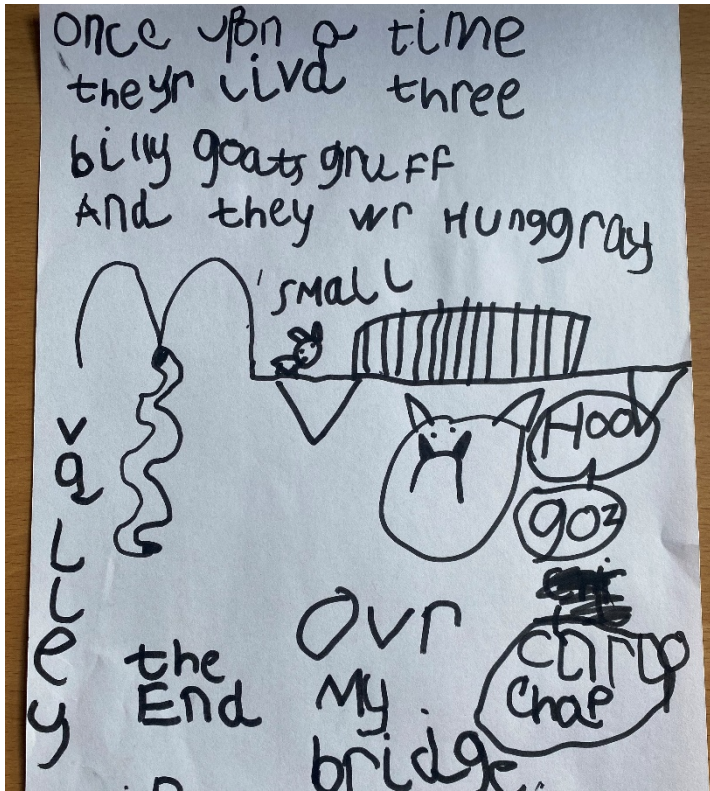 Once upon a time
theyr livd three
billy goats gruff
And they wr Hunggray
small
valley
Hoo
goz
Ovr
My
bridge
chap
the
End